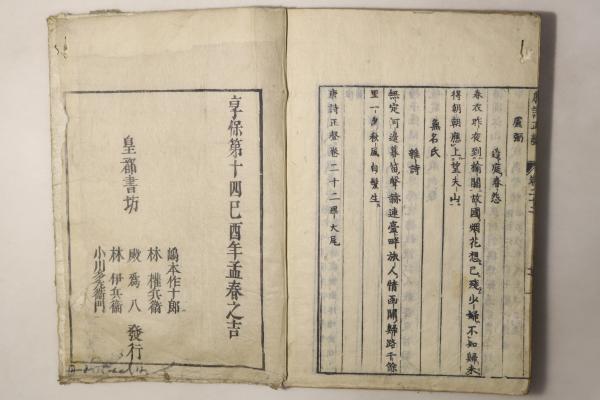 盧弼
邊庭春怨
春衣昨夜到榆關故國烟花想已殘少婦不知歸未
得朝朝應上望夫山
無名氏
雜詩
無定河邊暮笛聲赫連臺畔旅人情函關歸路千餘
里一夕秋風白髮生
唐詩正聲卷二十二畢大尾
享保第十四己酉年孟春之吉
皇都書坊
嶋本作十郎
林權兵衛
殿為八
林伊兵衛
小川多左衛門
發行